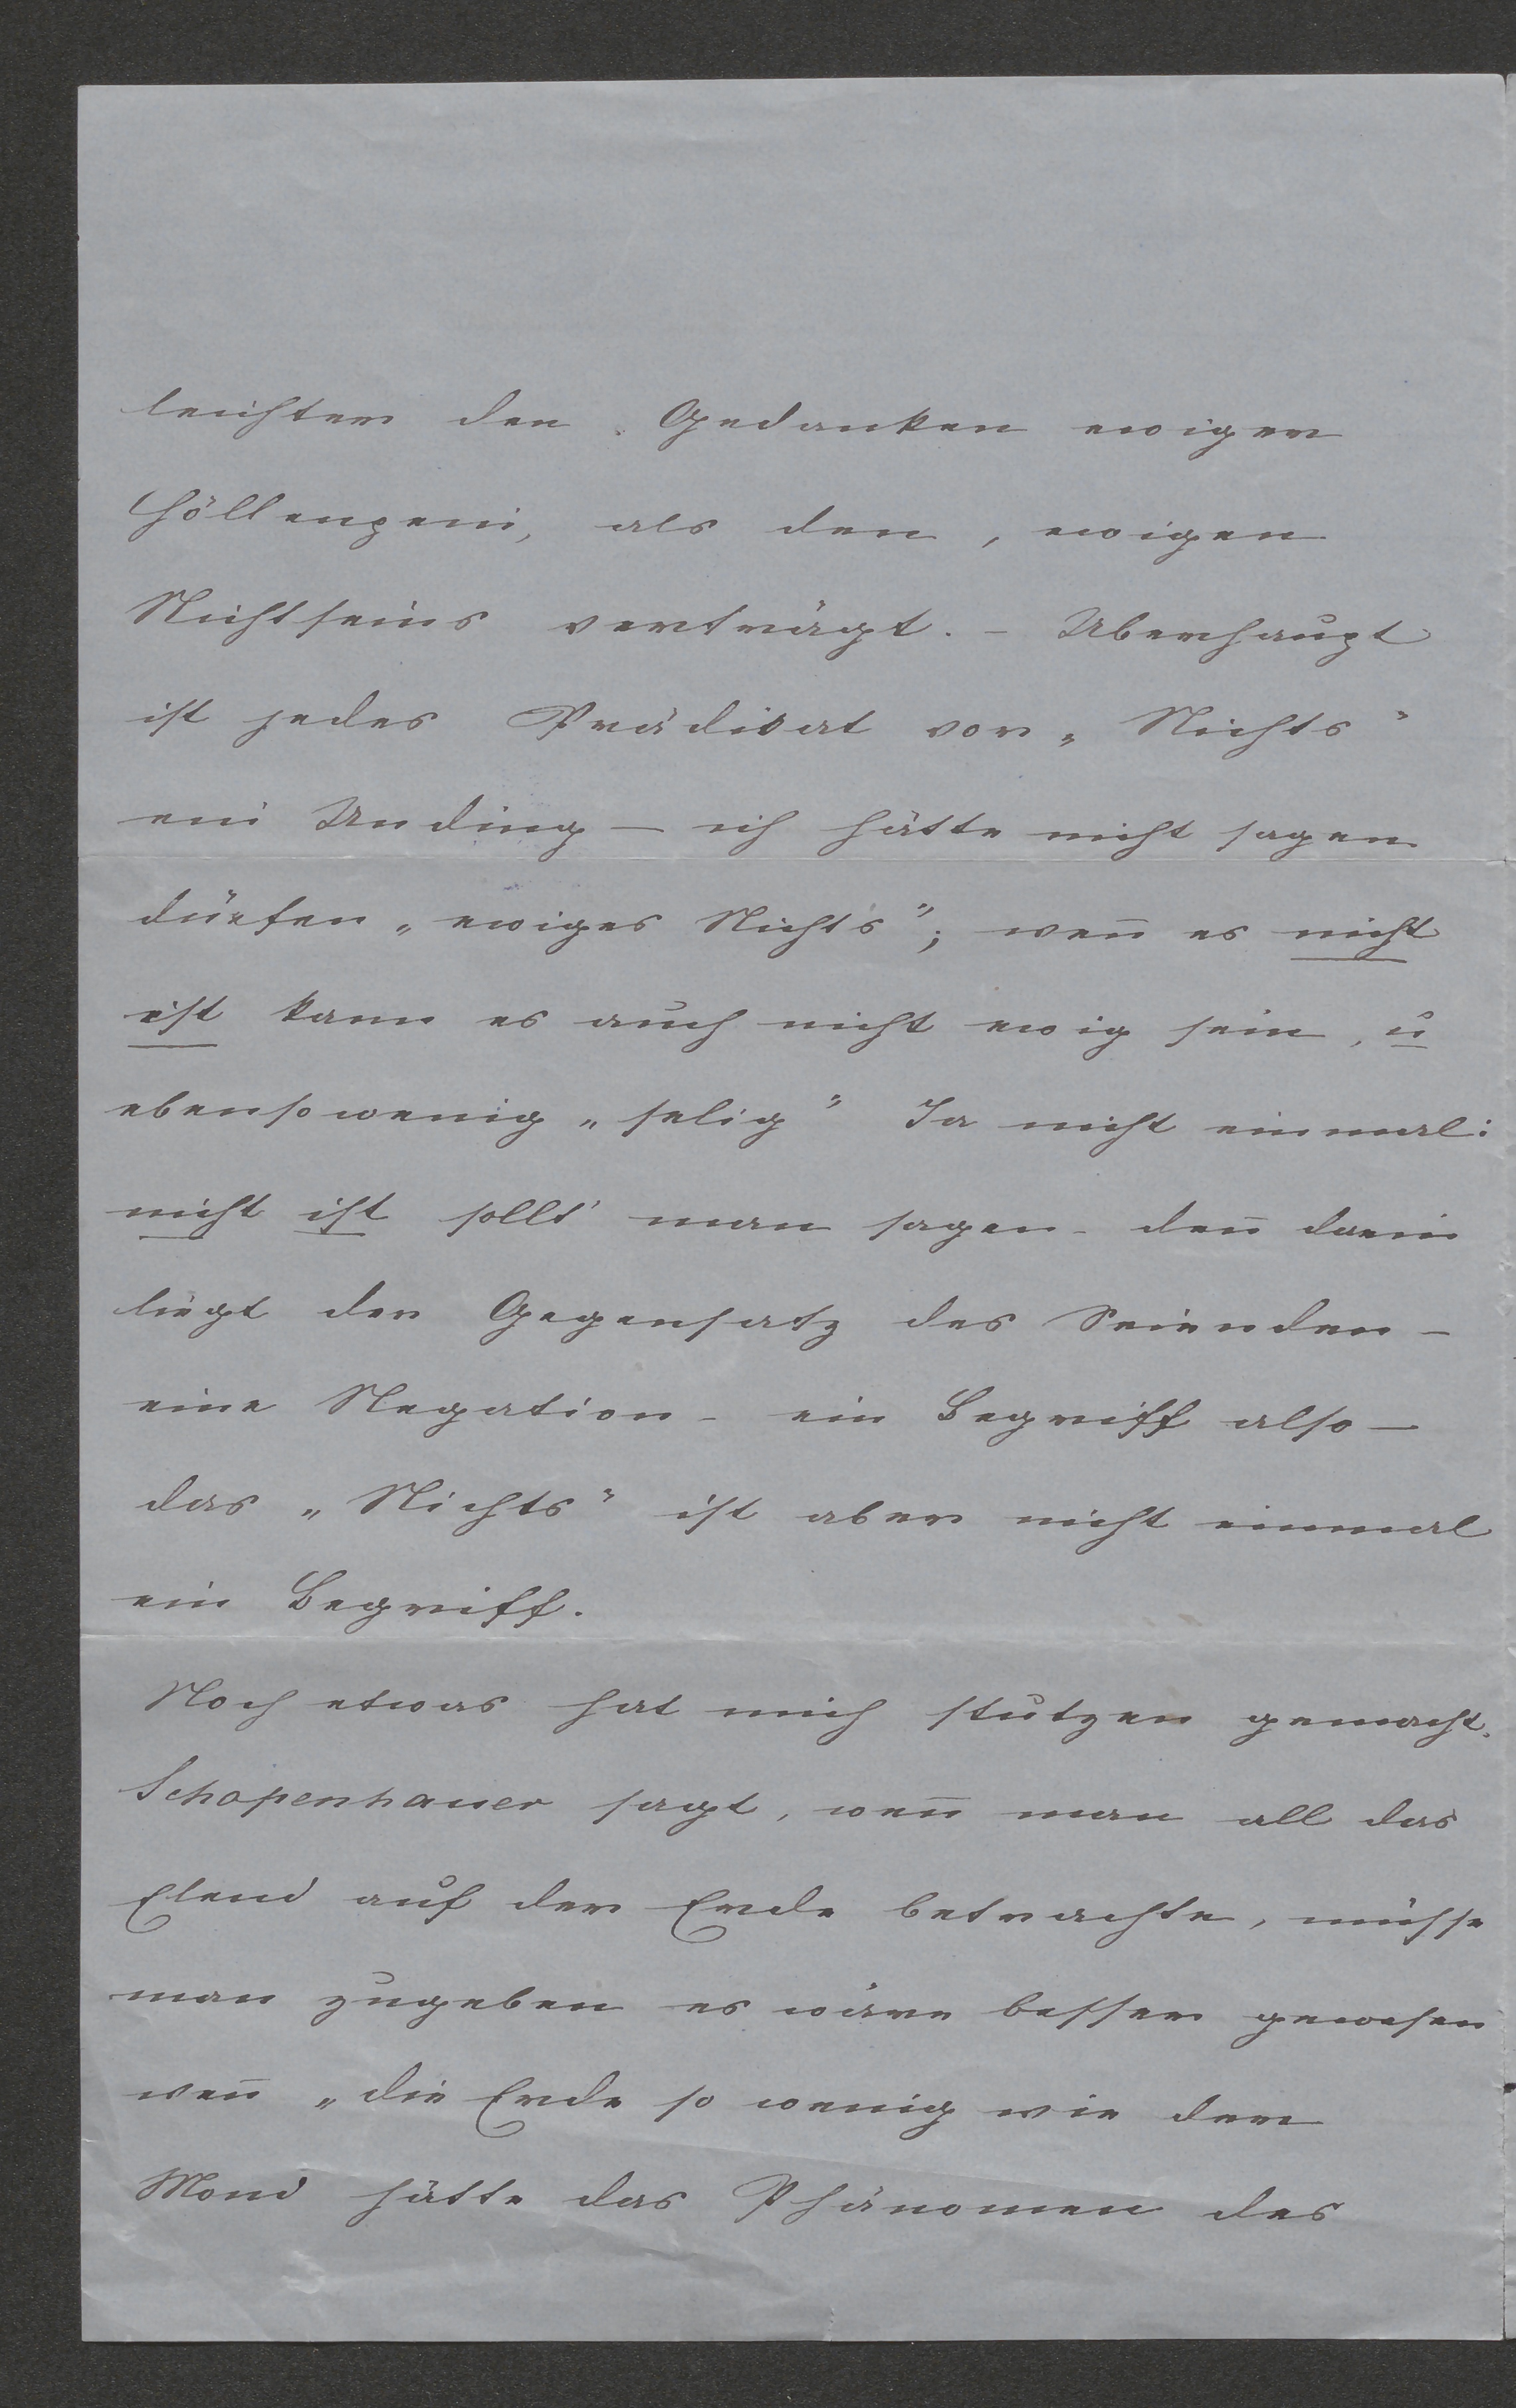 leichter den Gedanken ewiger
Höllenpein, als den, ewigen
Nichtseins verträgt. - Uberhaupt
ist jedes Prädikat vor „Nichts"
ein Unding — ich hätte nicht sagen
dürfen „ewiges Nichts"; wen̄ es nicht
ist kann es auch nicht ewig sein, u
ebensowenig „selig" Ja nicht einmal:
nicht ist sollt' man sagen - den̄ darin
liegt der Gegensatz des Seienden -
eine Negation - ein Begriff also —
das „Nichts" ist aber nicht einmal
ein Begriff.
Noch etwas hat mich stutzen gemacht.
Schopenhauer sagt, wen̄ man all das
Elend auf der Erde betrachte, müsse
man zugeben es wäre besser gewesen
wen̄ „die Erde so wenig wie der
Mond hätte das Phänomen des